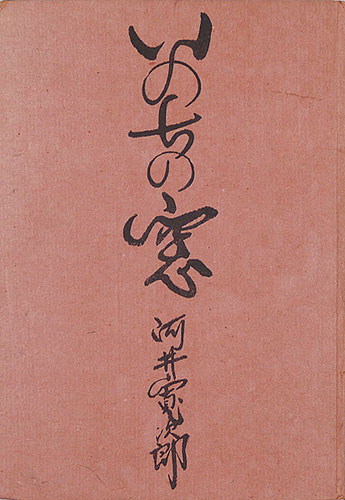 いのちの窓
河井寛次郎